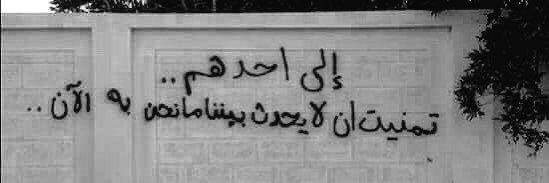 إلى احدهم ..
تمنيت ان لا يحدث بيننا ما نحن به الآن ..